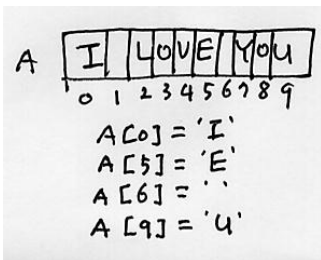 A I LOVE YOU
0 1 2 3 4 5 6 7 8 9
A[0] = 'I'
A[5] = 'E'
A[6] = ' '
A[9] = 'U'